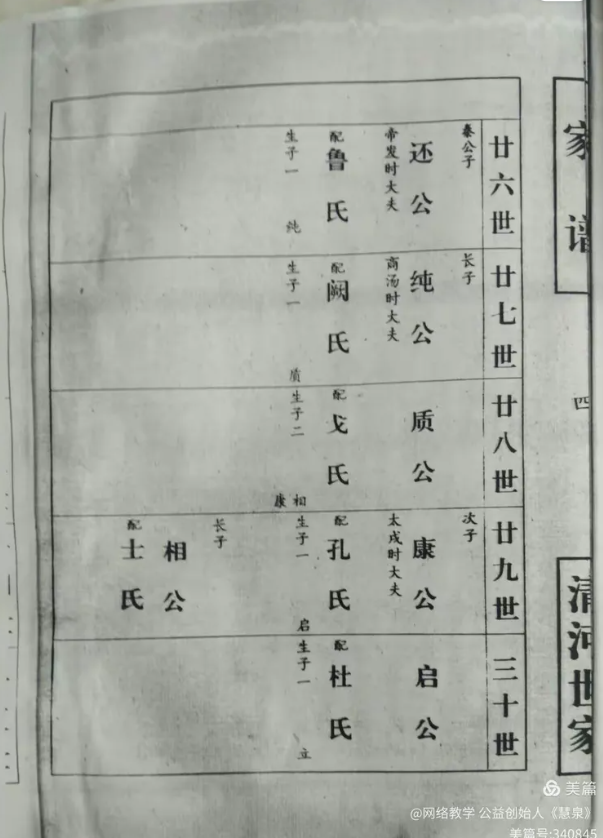 家谱
四
清河世家
廿六世
公子
还公
帝发时大夫
配
鲁氏
生子一
纯
廿七世
长子
纯公
商汤时大夫
配
阙氏
生子一
质
廿八世
质公
配
戈氏
生子二
相
康
廿九世
次子
康公
太戊时大夫
配
孔氏
生子一
启
长子
相公
配
士氏
三十世
启公
配
杜氏
生子一
立
美篇
@网络教学 公益创始人《慧泉》
美篇号:340845